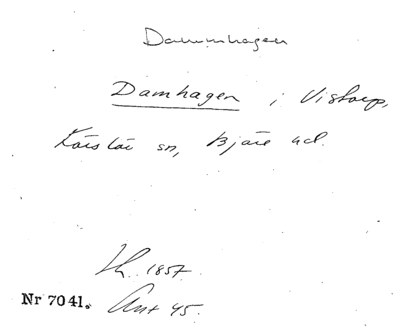 Dammhagen
Damhagen i Vistorp,
Förslöv sn, Bjäre hd.
Lh. 1857.
Nr 7041. Ant 45.